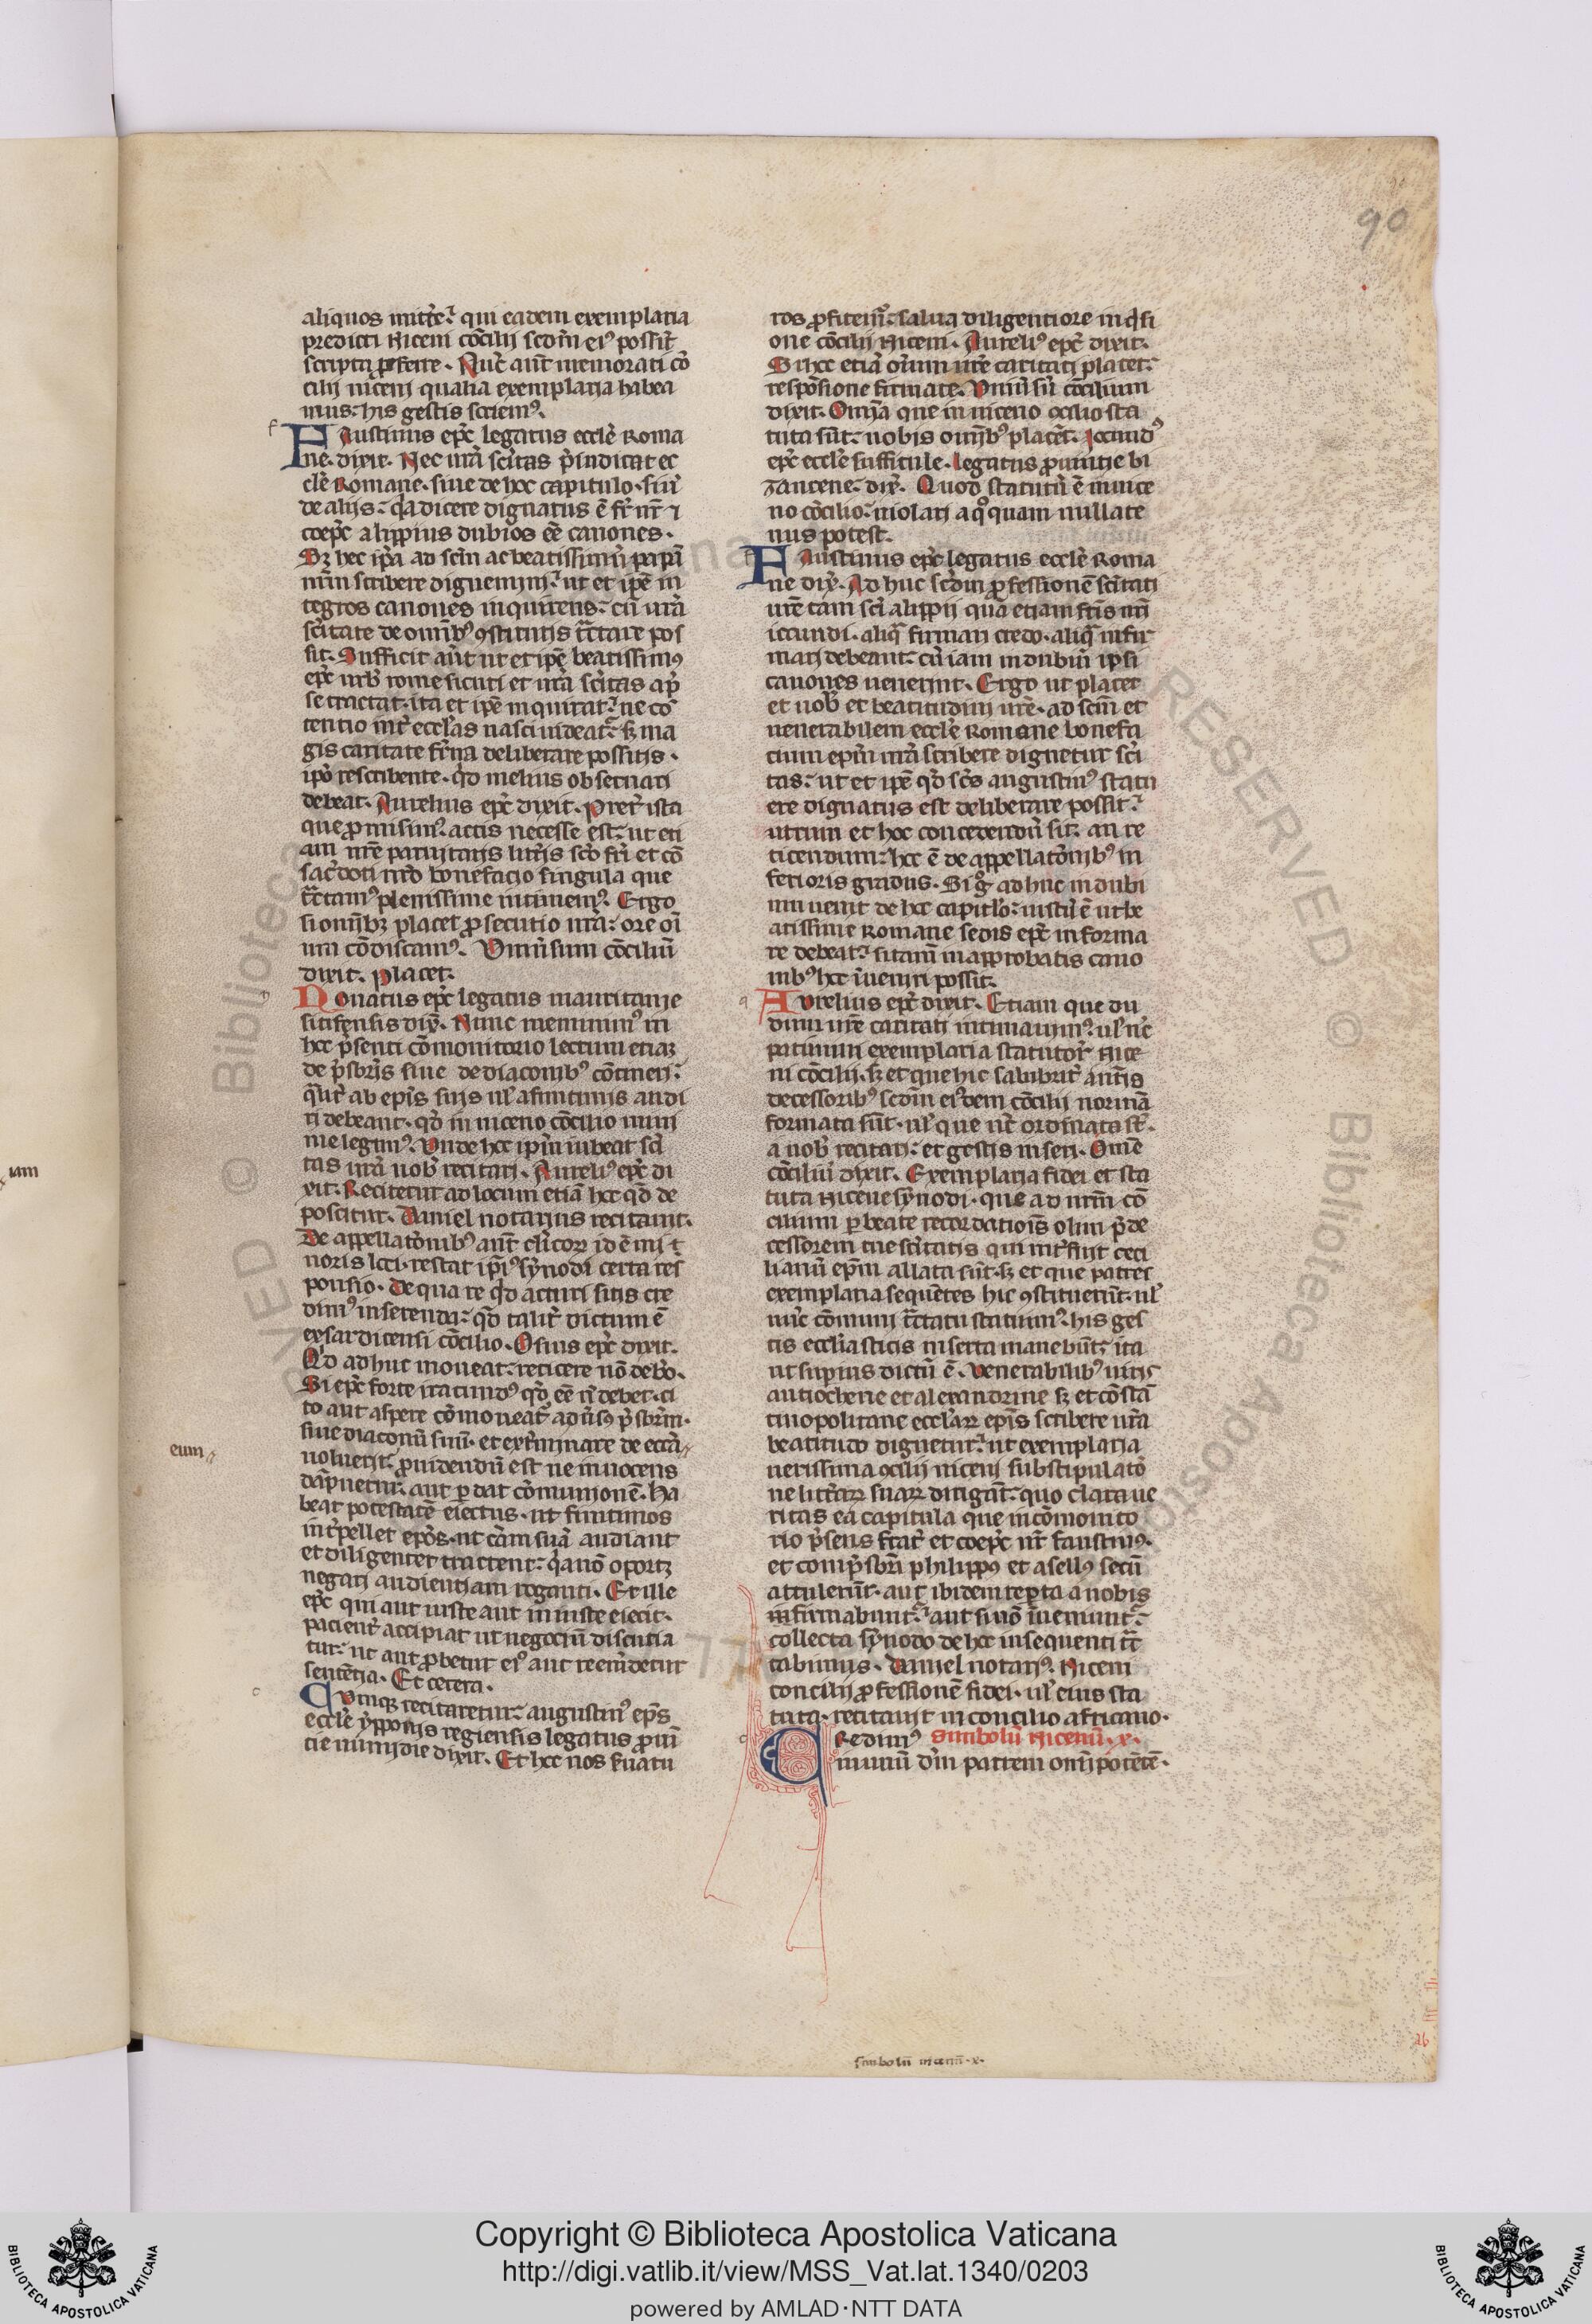 90
aliquos mitte᷑r qui eadem exemplaria
predicti Niceni co̅cilij scdm̅ ei᷒ possit
scripta ꝓferre. Nu̅c aut̅ memorati co̅
cilij niceni qualia exemplaria habea
mus: his gestis sciem᷒.
f
Faustinus ep̅c legatus eccle̅ Roma
ne. dixit. Nec ur̅a sc̅itas p̅iudicat ec
cle̅ Romane. siue de hoc capitulo. siue̅
de alijs: q̅a dicere dignatus e̅ fr̅ nr̅ ⁊
coep̅c alippius dubios ee̅ canones.
Sꝫ hec ip̅a ad sc̅m ac beatissimu̅ papa̅
nr̅m scribere dignemini: ut et ip̅e in
tegros canones inquirens: cu̅ ur̅a
sc̅itate de omib᷒ ꝯstitutis t̅ctare pos
sit. Sufficit aut̅ ut et ip̅e beatissim᷒
ep̅c urb̅ rome sicuti et ur̅a sc̅itas ap̅
se tractat. ita et ip̅e inquirat: ne co̅
tentio int̅ eccl̅as nasci uideat᷑: sꝫ ma
gis caritate fr̅na deliberare possitis.
ip̅o rescribente. q̅d melius obseruari
debeat. Aurelius ep̅c dixit. Preter̅ ista
que ꝓmisim᷒. actis necesse est: ut eti
am nr̅e paruitatis litte̅ris sc̅o fr̅i et co̅
sac̅doti nr̅o bonefacio singula que
t̅ctam᷒ plenissime intimem᷒. Ergo
si omnibꝫ placet ꝓsecutio nr̅a: ore oi̅
um co̅discam᷒. Uniu̅sum co̅ciliu̅
dixit. Placet.
Nouatus ep̅c legatus mauritanie
sitifensis dix̅. Nunc memini᷒ in
hoc p̅senti co̅monitorio lectum etiaꝫ
de p̅sbr̅is siue de diaconib᷒ co̅tineri:
q̅lit̅ ab ep̅is suis ul̅ a finitimis audi
ri debeant. q̅d in niceno co̅cilio mini
me legim᷒. Unde hoc ip̅m iubeat sc̅i
tas ur̅a nob̅ recitari. Aureli᷒ ep̅c di
xit. Recitetur ad locum etia̅ hoc q̅d de
poscitur. Daniel notarius recitauit.
De appellat̅onib᷒ aut̅ cl̅icoꝝ id e̅ mi
noris loci. restat ip̅i᷒ sy̅nodi certa res
ponsio. De qua re q̅d acturi sitis cre
dim᷒ inserenda: q̅d talit̅ dictum e̅
ex sardicensi co̅cilio. Osius ep̅c dixit.
Q̅d adhuc moueat: reticere no̅ debeo.
Si ep̅c forte iracund᷒ q̅d ee̅ n̅ debet. ci
to aut aspere co̅moueat᷑ adu̅s᷒ p̅sbr̅m.
siue diaconu̅ suu̅. et exterminare de eccl̅a
eum
noluerit: ꝓuidendu̅ est ne innocens
da̅pnetur. aut ꝑdat co̅munione̅. Ha
beat potestate̅ eiectus. ut finitimos
int̅pellet ep̅os. ut ca̅m sua̅ audiant
et diligenter tractent: q̅a no̅ oportꝫ
negari audientiam roganti. Et ille
ep̅c qui aut iuste aut iniuste eiecit.
pacient̅ accipiat ut negociu̅ discutia
tur: ut aut ꝓbetur ei᷒ aut reeme̅detur
sente̅tia. Et cetera.
c
Cumqꝫ recitaretur: augustin᷒ ep̅s
eccle̅ yppo̅nis regiensis legatus ꝓuin̅
cie numidie dixit. Et hoc nos seruatu
ros ꝓfitem᷒: salua diligentiore inq̅si
one co̅cilij Niceni. Aureli᷒ ep̅c dixit.
Si hoc etia̅ om̅ium ur̅e caritati placet:
respo̅sione firmate. Uniu̅su̅ co̅cilium
dixit. Omnia que in niceno ꝯcilio sta
tuta su̅t: nobis omib᷒ place̅t. Iocund᷒
ep̅c eccle̅ suffitule. legatus ꝓuintie bi
zancene. dix̅. Quod statutu̅ e̅ in nice
no co̅cilio: uiolari a q̅quam nullate
nus potest.
Faustinus ep̅c legatus eccle̅ Roma
ne dix̅. Adhuc sc̅dm ꝓfessione̅ sc̅itati
ur̅e tam sc̅i alippij qua̅ etiam fr̅is nr̅i
iocundi. aliq̅ firmari credo. aliq̅ infir
mari debeant: cu̅ iam in dubiu̅ ipsi
canones uenerint. Ergo ut placet
et nob̅ et beatitudini ur̅e. ad sc̅m et
uenerabilem eccle̅ Romane bonefa
cium ep̅m ur̅a scribere dignetur sc̅i
tas: ut et ip̅e q̅d sc̅s augustin᷒ statu
ere dignatus est deliberare possit:
utrum et hoc concedendu̅ sit: an re
ticendum: hoc e̅ de appellat̅onib᷒ in
ferioris gradus. Si g̅ adhuc in dubi
um uenit de hoc capitl̅o: iustu̅ e̅ ut be
atissime Romane sedis ep̅c informa
re debeat: si tam̅ in approbatis cano
nib᷒ hoc i̅ueniri possit.
a
Aurelius ep̅c dixit. Etiam que du
dum ur̅e caritati intimauim᷒. ul̅ nc̅
patimini exemplaria statutoꝝ Nice
ni co̅cilij. sꝫ et que hic salubrit̅ ant̅is
decessorib᷒ scdm̅ ei᷒dem co̅cilij norma̅
formata su̅t. ul̅ que nc̅ ordinata st̅.
a nob̅ recitari: et gestis inseri. Om̅e
co̅ciliu̅ dixit. Exemplaria fidei et sta
tuta Nicene sy̅nodi. que ad nr̅m co̅
cilium ꝑ beate recordatiois̅ olim p̅de
cessorem tue sc̅itatis qui int̅fuit ceci
lianu̅ ep̅m allata su̅t. sꝫ et que patres
exemplaria seque̅tes hic ꝯstituerut̅. ul̅
nu̅c co̅muni t̅ctatu statuim᷒: his ges
tis eccl̅iasticis inserta manebu̅t: ita
ut superius dictu̅ e̅. Uenerabilib᷒ uiris
antiochene et alexandrine sꝫ et co̅sta̅
tinopolitane eccl̅aꝝ ep̅is scribere ur̅a
beatitudo dignetur: ut exemplaria
uerissima ꝯcilij niceni sub stipulat̅o
ne litt̅aꝝ suaꝝ dirigat̅: quo clara ue
ritas ea capitula que in co̅monito
rio p̅sens frat̅ et coep̅c nr̅ faustin᷒.
et comp̅sbr̅i philipp᷒ et asell᷒ secu̅
attulerut̅. aut ibidem rep̅ta a nobis
infirmabunt᷑: aut si no̅ i̅ueniunt᷑:
collecta sy̅nodo de hoc insequenti t̅c
tabimus. Daniel notari᷒. Niceni
concilij ꝓfessione̅ fidei. ul̅ eius sta
tuta. recitauit in concilio africano.
c
Credim᷒ Simbolu̅ Nicenu̅. x.
in unu̅ d̅m patrem om̅ipote̅te̅.
simbolu̅ nicenu̅. x.
Copyright © Biblioteca Apostolica Vaticana
http://digi.vatlib.it/view/MSS_Vat.lat.1340/0203
powered by AMLAD·NTT DATA
BIBLIOTECA APOSTOLICA VATICANA
BIBLIOTECA APOSTOLICA VATICANA